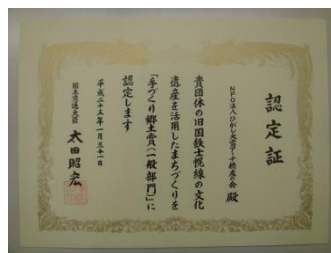 認定証
NPO法人ひがし大雪アーチ橋友の会 殿
貴団体の旧国鉄士幌線の文化
遺産を活用したまちづくりを
「手づくり郷土賞(一般部門)」に
認定します
平成二十五年一月三十一日
国土交通大臣
太田昭宏